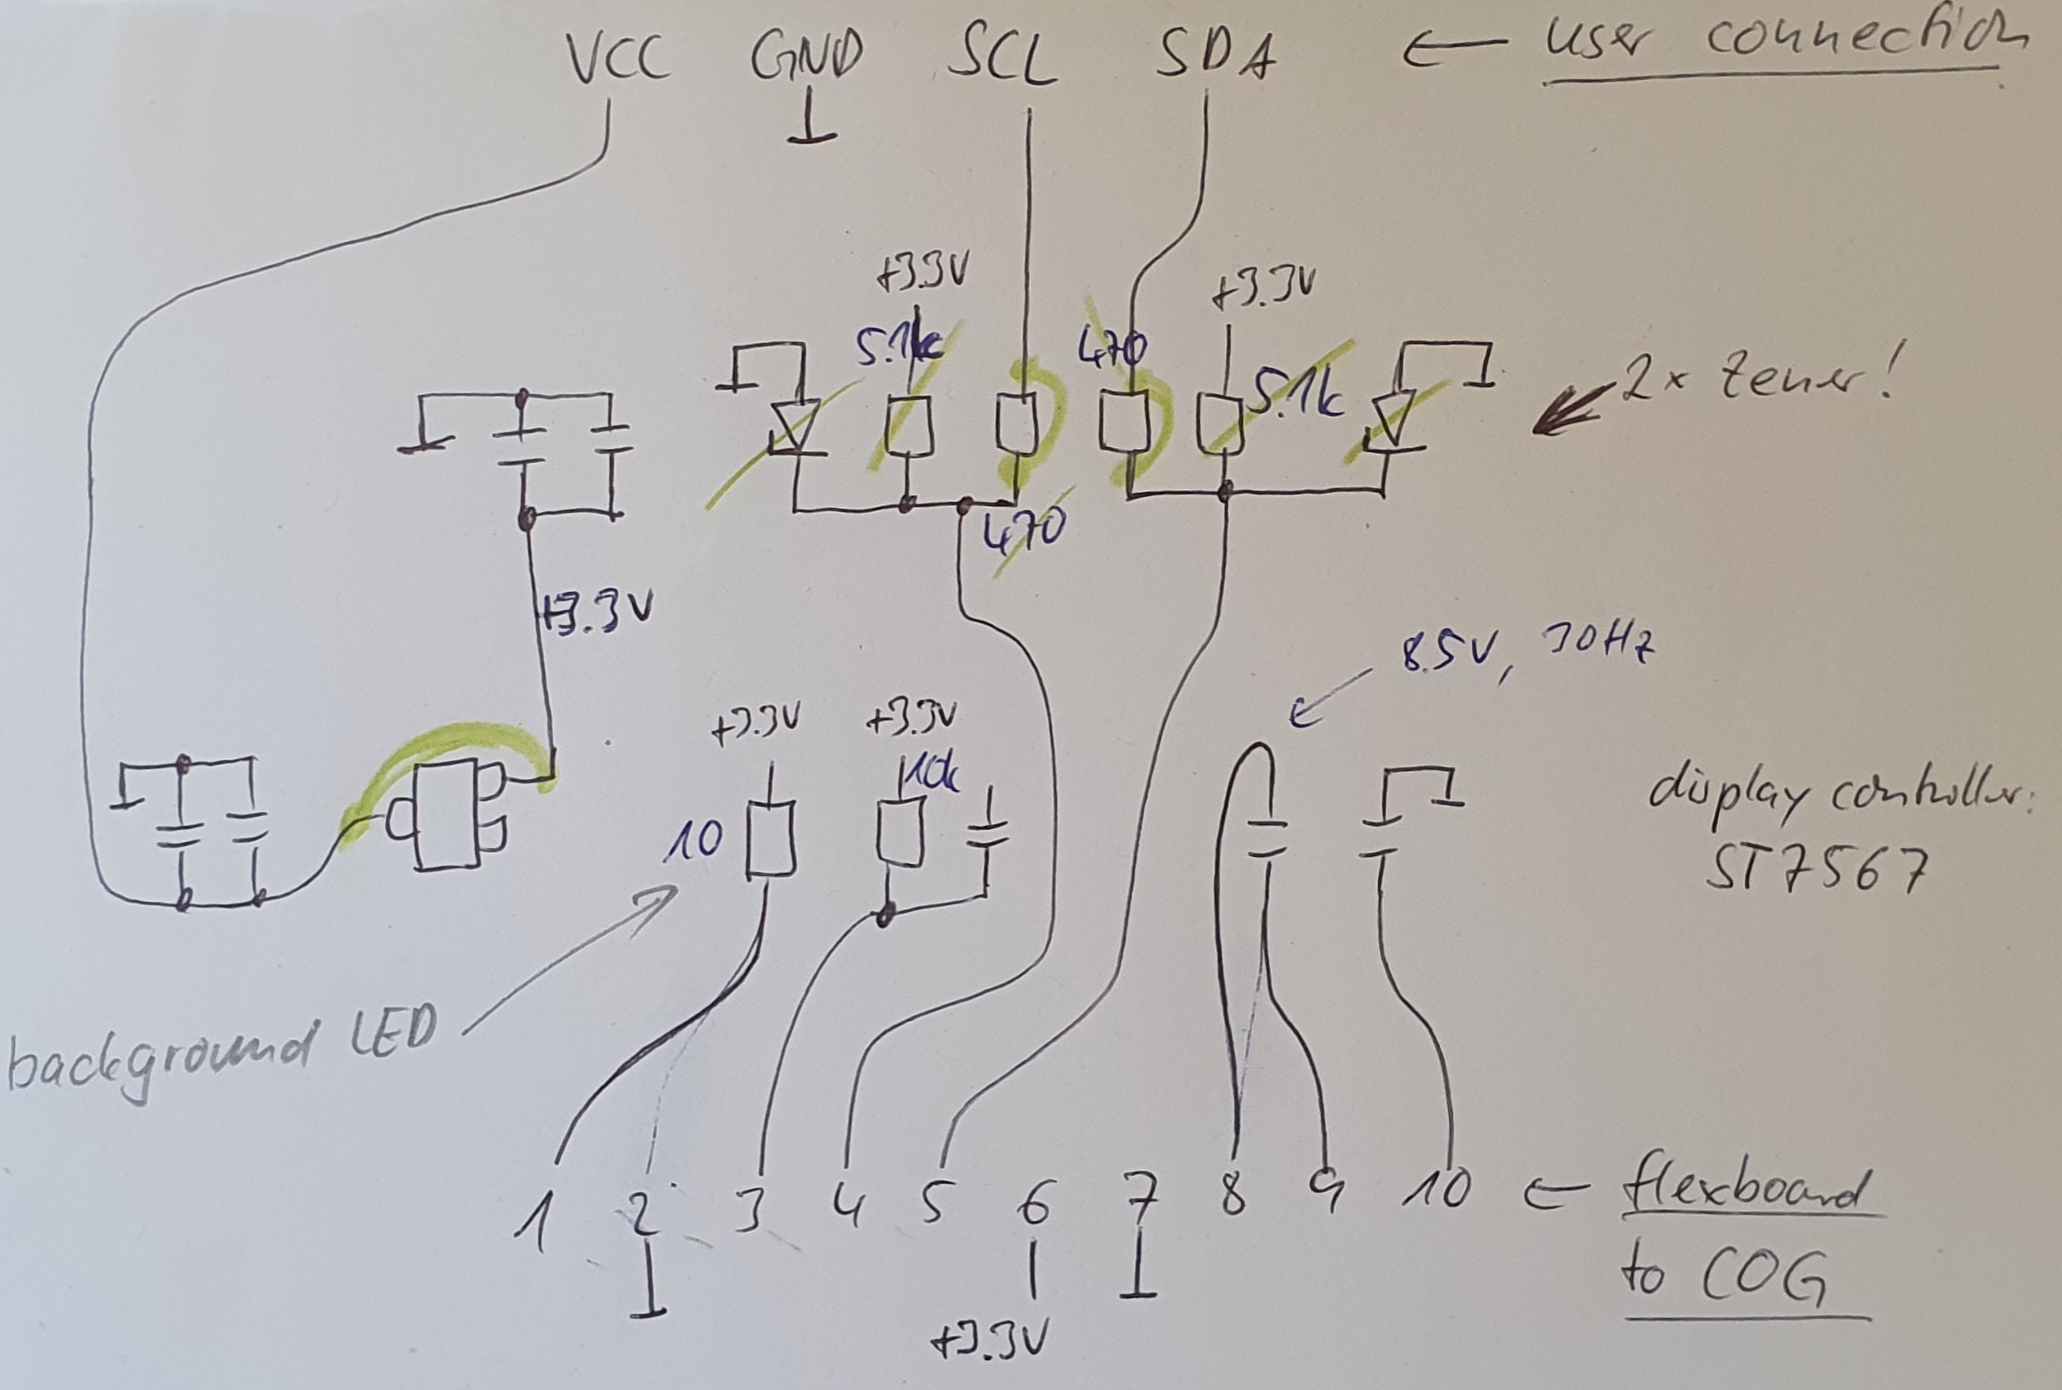 VCC GND SCL SDA ← user connection
+3.3V +3.3V
5.1k 470 5.1k 2x Zener!
470
+3.3V
8.5V, 30Hz
+3.3V +3.3V
10k
10
display controller:
ST7567
background LED
1 2 3 4 5 6 7 8 9 10 ← flexboard
to COG
+3.3V